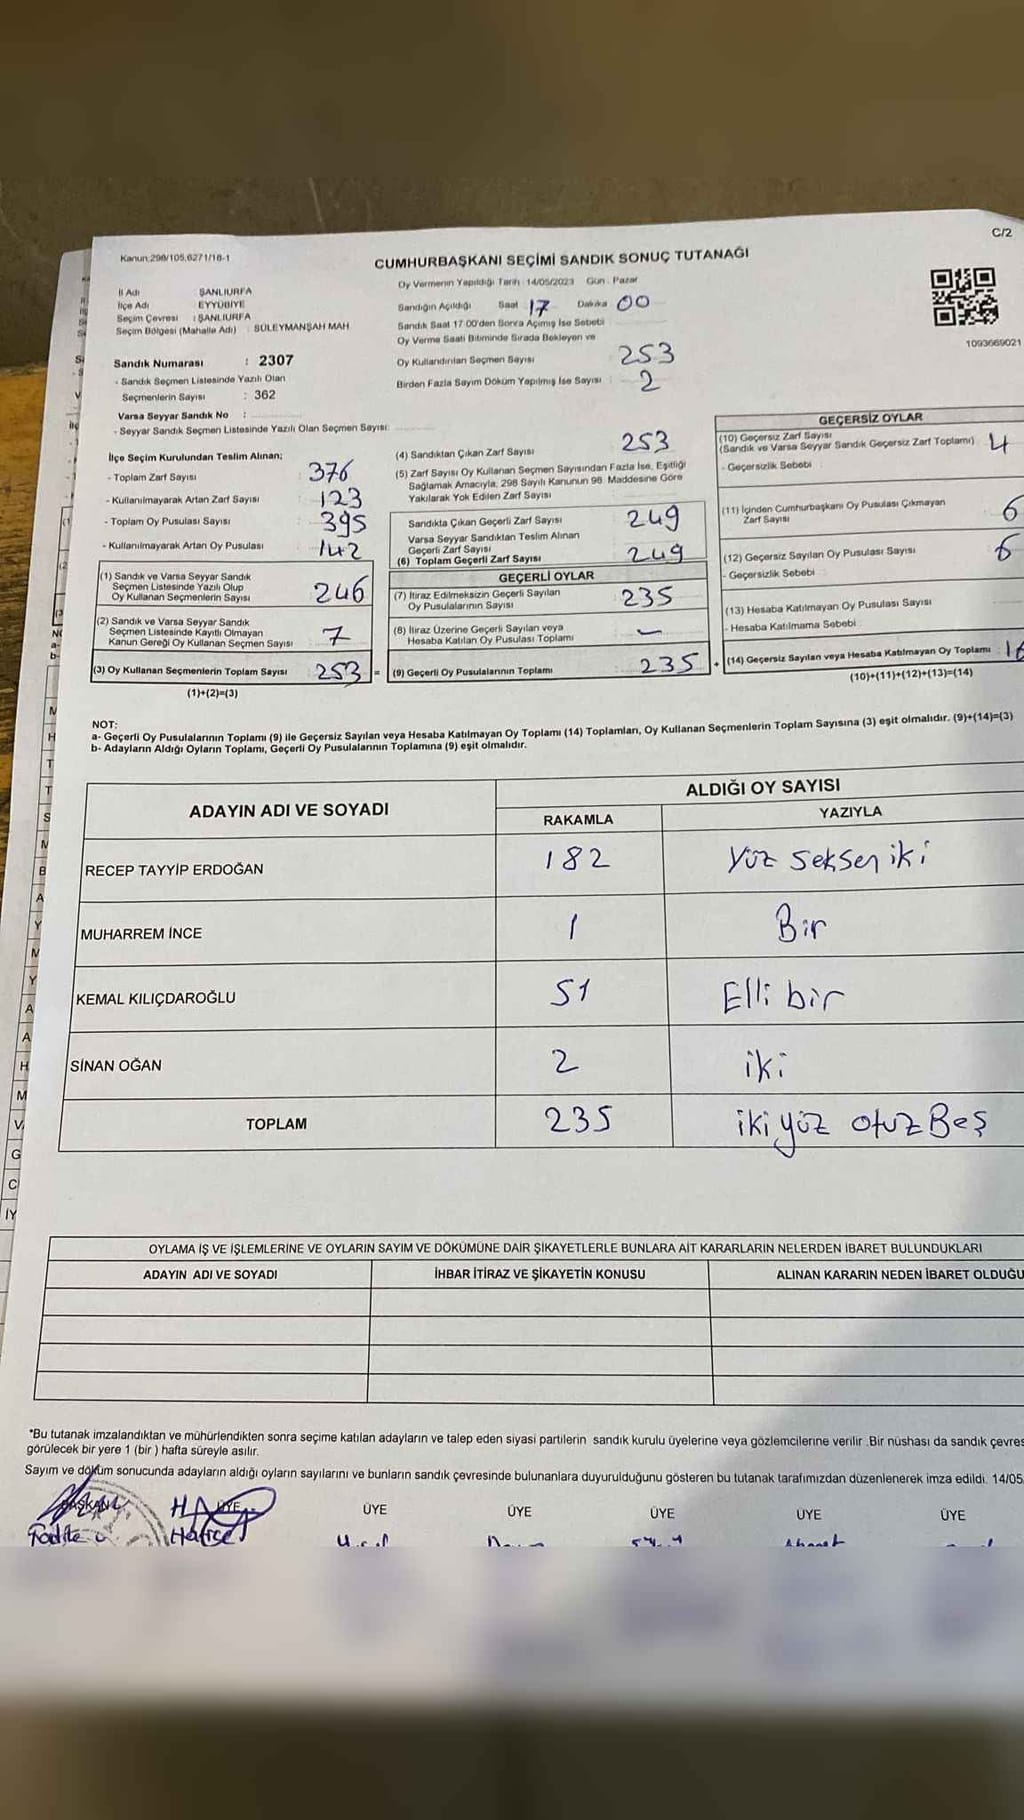 C/2
Kanun:298/105,6271/18-1
CUMHURBAŞKANI SEÇİMİ SANDIK SONUÇ TUTANAĞI
İl Adı : ŞANLIURFA
İlçe Adı : EYYÜBİYE
Seçim Çevresi : ŞANLIURFA
Seçim Bölgesi (Mahalle Adı) : SÜLEYMANŞAH MAH
Sandık Numarası : 2307
- Sandık Seçmen Listesinde Yazılı Olan
Seçmenlerin Sayısı : 362
Varsa Seyyar Sandık No :
- Seyyar Sandık Seçmen Listesinde Yazılı Olan Seçmen Sayısı:
Oy Vermenin Yapıldığı Tarih : 14/05/2023 Gün : Pazar
Sandığın Açıldığı Saat 17 Dakika 00
Sandık Saat 17 00'den Sonra Açımış İse Sebebi
Oy Verme Saati Bitiminde Sırada Bekleyen ve
Oy Kullandırılan Seçmen Sayısı 253
Birden Fazla Sayım Döküm Yapılmış İse Sayısı : 2
1093669021
İlçe Seçim Kurulundan Teslim Alınan;
- Toplam Zarf Sayısı : 376
- Kullanılmayarak Artan Zarf Sayısı : 123
- Toplam Oy Pusulası Sayısı : 395
- Kullanılmayarak Artan Oy Pusulası : 142
(1) Sandık ve Varsa Seyyar Sandık
Seçmen Listesinde Yazılı Olup
Oy Kullanan Seçmenlerin Sayısı : 246
(2) Sandık ve Varsa Seyyar Sandık
Seçmen Listesinde Kayıtlı Olmayan
Kanun Gereği Oy Kullanan Seçmen Sayısı : 7
(3) Oy Kullanan Seçmenlerin Toplam Sayısı : 253 =
(1)+(2)=(3)
(4) Sandıktan Çıkan Zarf Sayısı 253
(5) Zarf Sayısı Oy Kullanan Seçmen Sayısından Fazla İse, Eşitliği
Sağlamak Amacıyla, 298 Sayılı Kanunun 98. Maddesine Göre
Yakılarak Yok Edilen Zarf Sayısı
Sandıkta Çıkan Geçerli Zarf Sayısı 249
Varsa Seyyar Sandıktan Teslim Alınan
Geçerli Zarf Sayısı
(6) Toplam Geçerli Zarf Sayısı 249
GEÇERLİ OYLAR
(7) İtiraz Edilmeksizin Geçerli Sayılan
Oy Pusulalarının Sayısı : 235
(8) İtiraz Üzerine Geçerli Sayılan veya
Hesaba Katılan Oy Pusulası Toplamı : -
(9) Geçerli Oy Pusulalarının Toplamı : 235 +
GEÇERSİZ OYLAR
(10) Geçersiz Zarf Sayısı
(Sandık ve Varsa Seyyar Sandık Geçersiz Zarf Toplamı) : 4
- Geçersizlik Sebebi :
(11) İçinden Cumhurbaşkanı Oy Pusulası Çıkmayan
Zarf Sayısı 6
(12) Geçersiz Sayılan Oy Pusulası Sayısı 6
- Geçersizlik Sebebi :
(13) Hesaba Katılmayan Oy Pusulası Sayısı
- Hesaba Katılmama Sebebi :
(14) Geçersiz Sayılan veya Hesaba Katılmayan Oy Toplamı :
(10)+(11)+(12)+(13)=(14)
NOT:
a- Geçerli Oy Pusulalarının Toplamı (9) ile Geçersiz Sayılan veya Hesaba Katılmayan Oy Toplamı (14) Toplamları, Oy Kullanan Seçmenlerin Toplam Sayısına (3) eşit olmalıdır. (9)+(14)=(3)
b- Adayların Aldığı Oyların Toplamı, Geçerli Oy Pusulalarının Toplamına (9) eşit olmalıdır.
ADAYIN ADI VE SOYADI
ALDIĞI OY SAYISI
RAKAMLA YAZIYLA
RECEP TAYYİP ERDOĞAN 182 Yüz seksen iki
MUHARREM İNCE 1 Bir
KEMAL KILIÇDAROĞLU 51 Elli bir
SİNAN OĞAN 2 iki
TOPLAM 235 iki yüz otuz Beş
OYLAMA İŞ VE İŞLEMLERİNE VE OYLARIN SAYIM VE DÖKÜMÜNE DAİR ŞİKAYETLERLE BUNLARA AİT KARARLARIN NELERDEN İBARET BULUNDUKLARI
ADAYIN ADI VE SOYADI İHBAR İTİRAZ VE ŞİKAYETİN KONUSU ALINAN KARARIN NEDEN İBARET OLDUĞU
*Bu tutanak imzalandıktan ve mühürlendikten sonra seçime katılan adayların ve talep eden siyasi partilerin sandık kurulu üyelerine veya gözlemcilerine verilir .Bir nüshası da sandık çevres
görülecek bir yere 1 (bir ) hafta süreyle asılır.
Sayım ve döküm sonucunda adayların aldığı oyların sayılarını ve bunların sandık çevresinde bulunanlara duyurulduğunu gösteren bu tutanak tarafımızdan düzenlenerek imza edildi. 14/05
BAŞKAN ÜYE ÜYE ÜYE ÜYE ÜYE ÜYE
Hatice